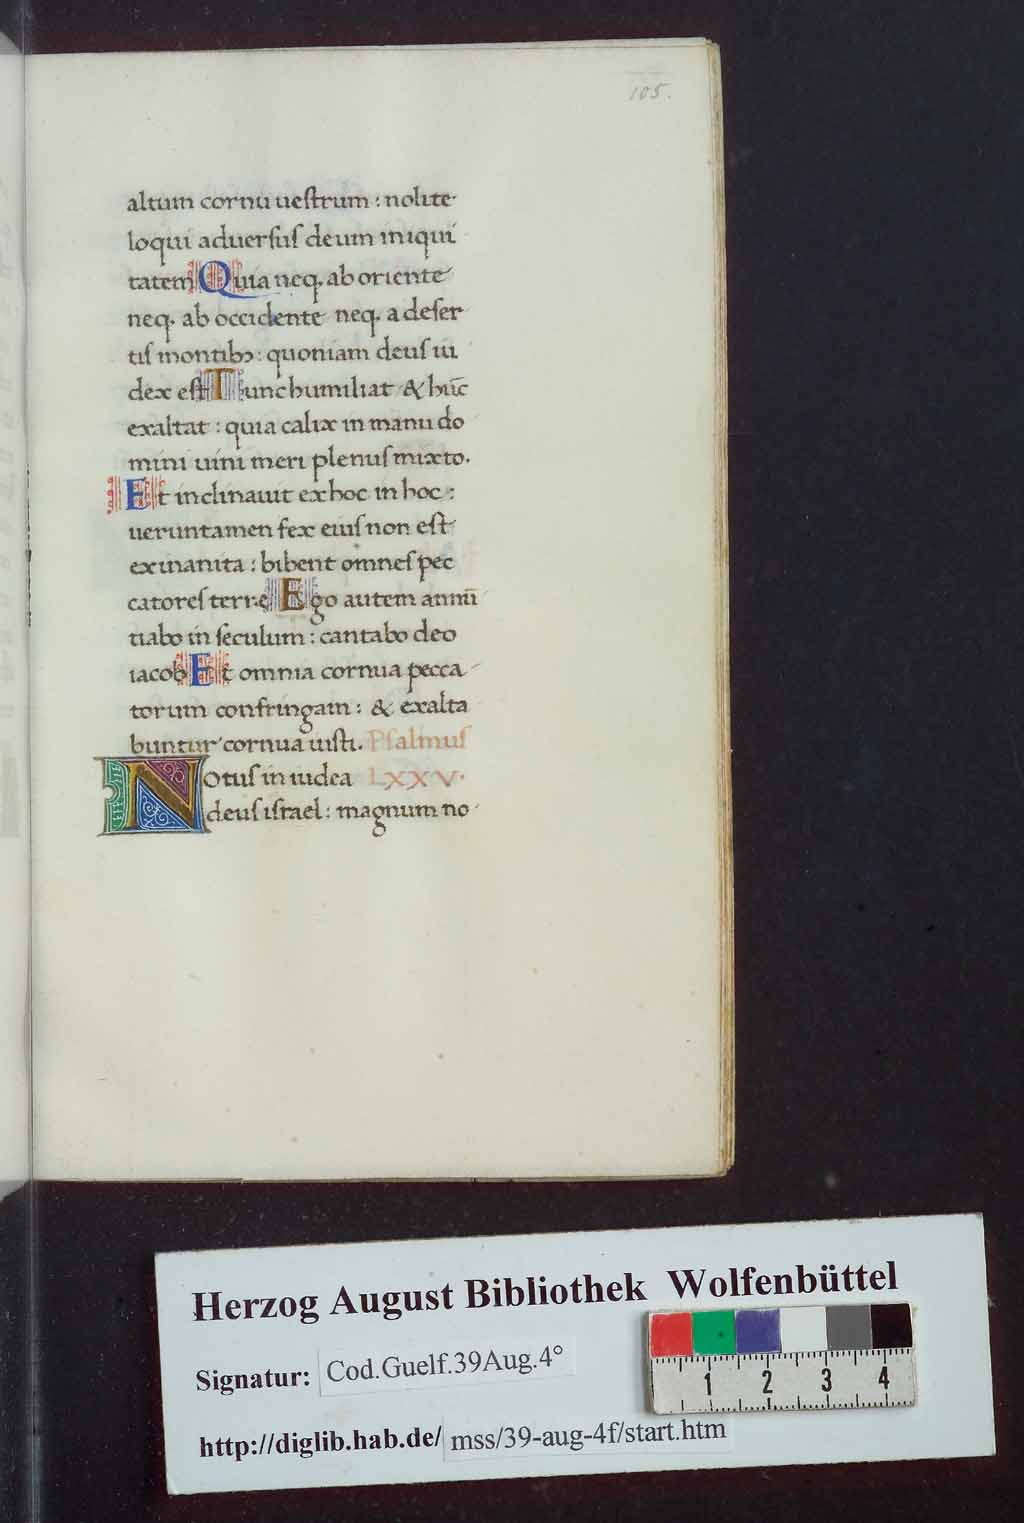 105.
altum cornu ueſtrum : nolite
loqui aduerſuſ deum iniqui
tatem Quia neq. ab oriente
neq. ab occidente neq. a deſer
tiſ montibꝫ : quoniam deuſ iu
dex eſt Tunc humiliat & hūc
exaltat : quia calix in manu do
mini uini meri plenuſ mixto.
Et inclinauit ex hoc in hoc :
ueruntamen fex eiuſ non eſt
exinanita : bibent omneſ pec
catoreſ terrę Ego autem annū
tiabo in ſeculum : cantabo deo
iacob Et omnia cornua pecca
torum confringam : & exalta
buntur cornua iuſti. Pſalmuſ
Notuſ in iudea LXXV.
deuſ iſrael : magnum no
Herzog August Bibliothek Wolfenbüttel
Signatur: Cod.Guelf.39Aug.4°
1 2 3 4
http://diglib.hab.de/ mss/39-aug-4f/start.htm